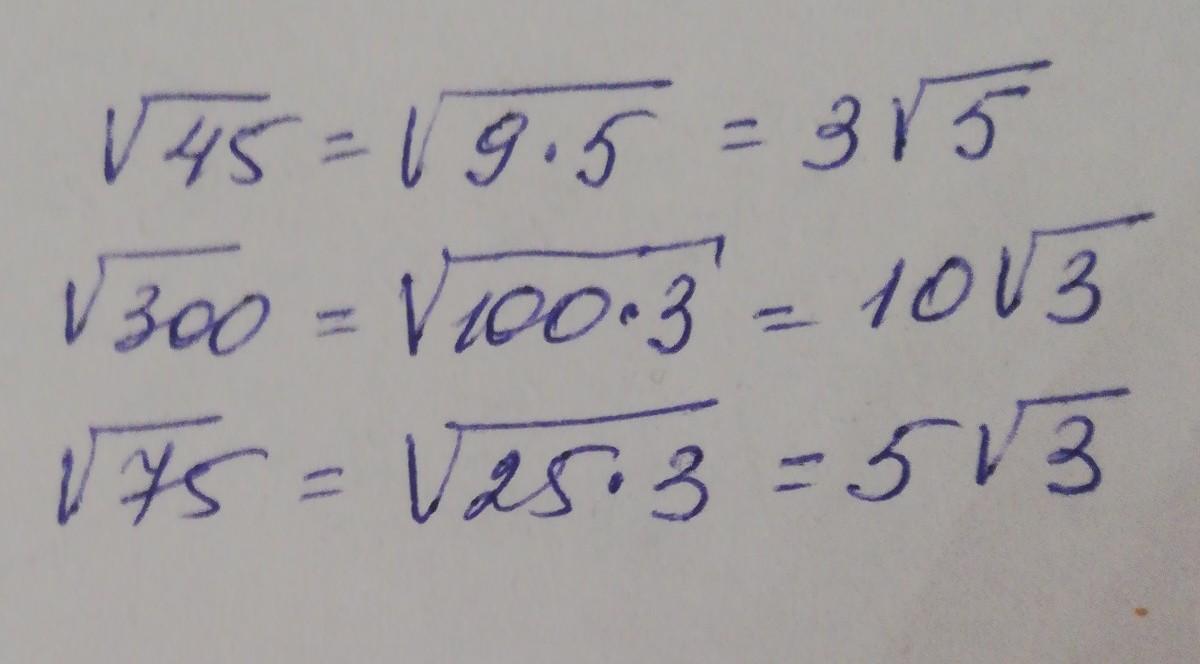 √45 = √9·5 = 3√5
√300 = √100·3 = 10√3
√75 = √25·3 = 5√3